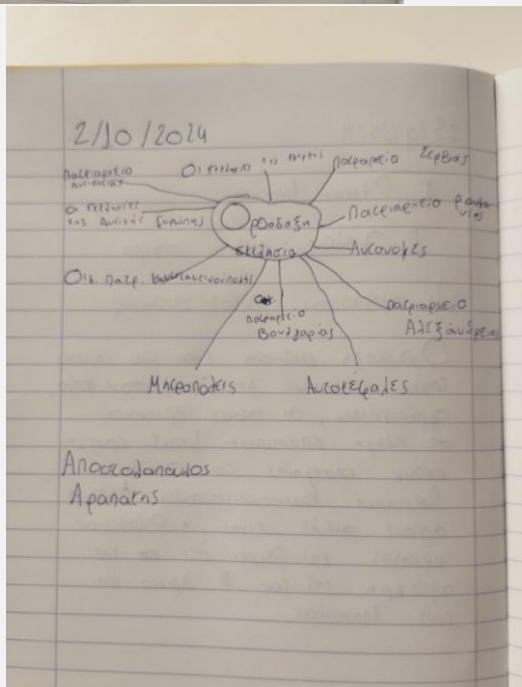 2/10/2024
Πατριαρχείο
Οι εκκλησίες της Κρήτης
Πατριαρχείο Σερβίας
Οι εκκλησίες
της Δυτικής Ευρώπης
Ορθοδοξη
εκκλησία
Πατριαρχείο
Αυτονομες
Οικ. Πατρ. Κωνσταντινούπολης
Πατριαρχείο
Βουλγαρίας
Πατριαρχείο
Αλεξάνδρειας
Μητροπόλεις
Αυτοκεφαλες
Αποστολοπουλος
Αραπάκης